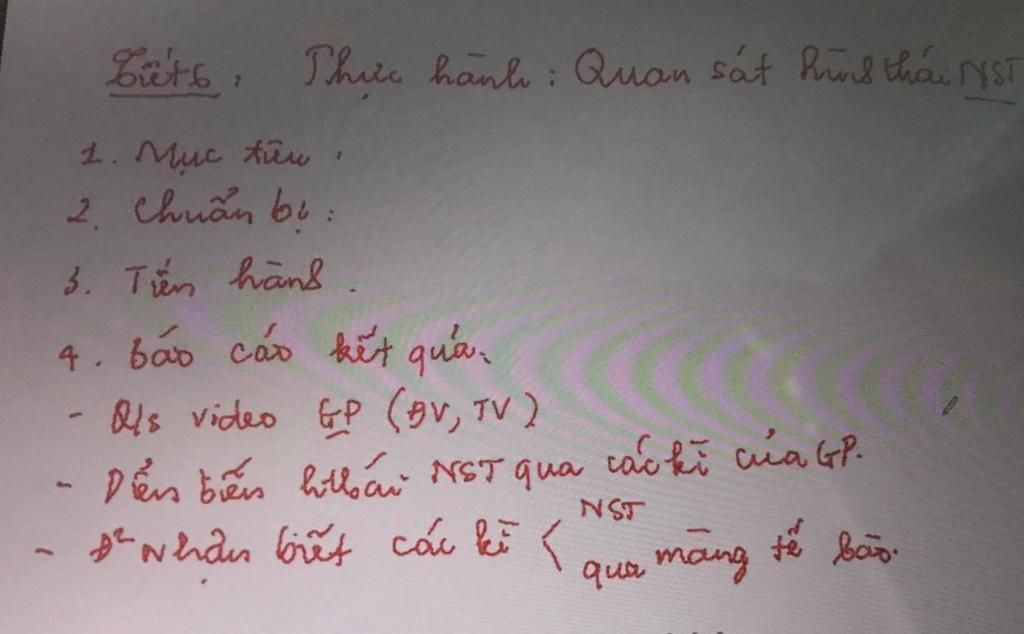 Tiết 6: Thực hành: Quan sát hình thái NST
1. Mục tiêu:
2. Chuẩn bị:
3. Tiến hành.
4. báo cáo kết quả:
- Q/s video GP (ĐV, TV)
- Diễn biến hthái NST qua các kì của GP.
- Đ² Nhận biết các kì < NST
qua màng tế bào.